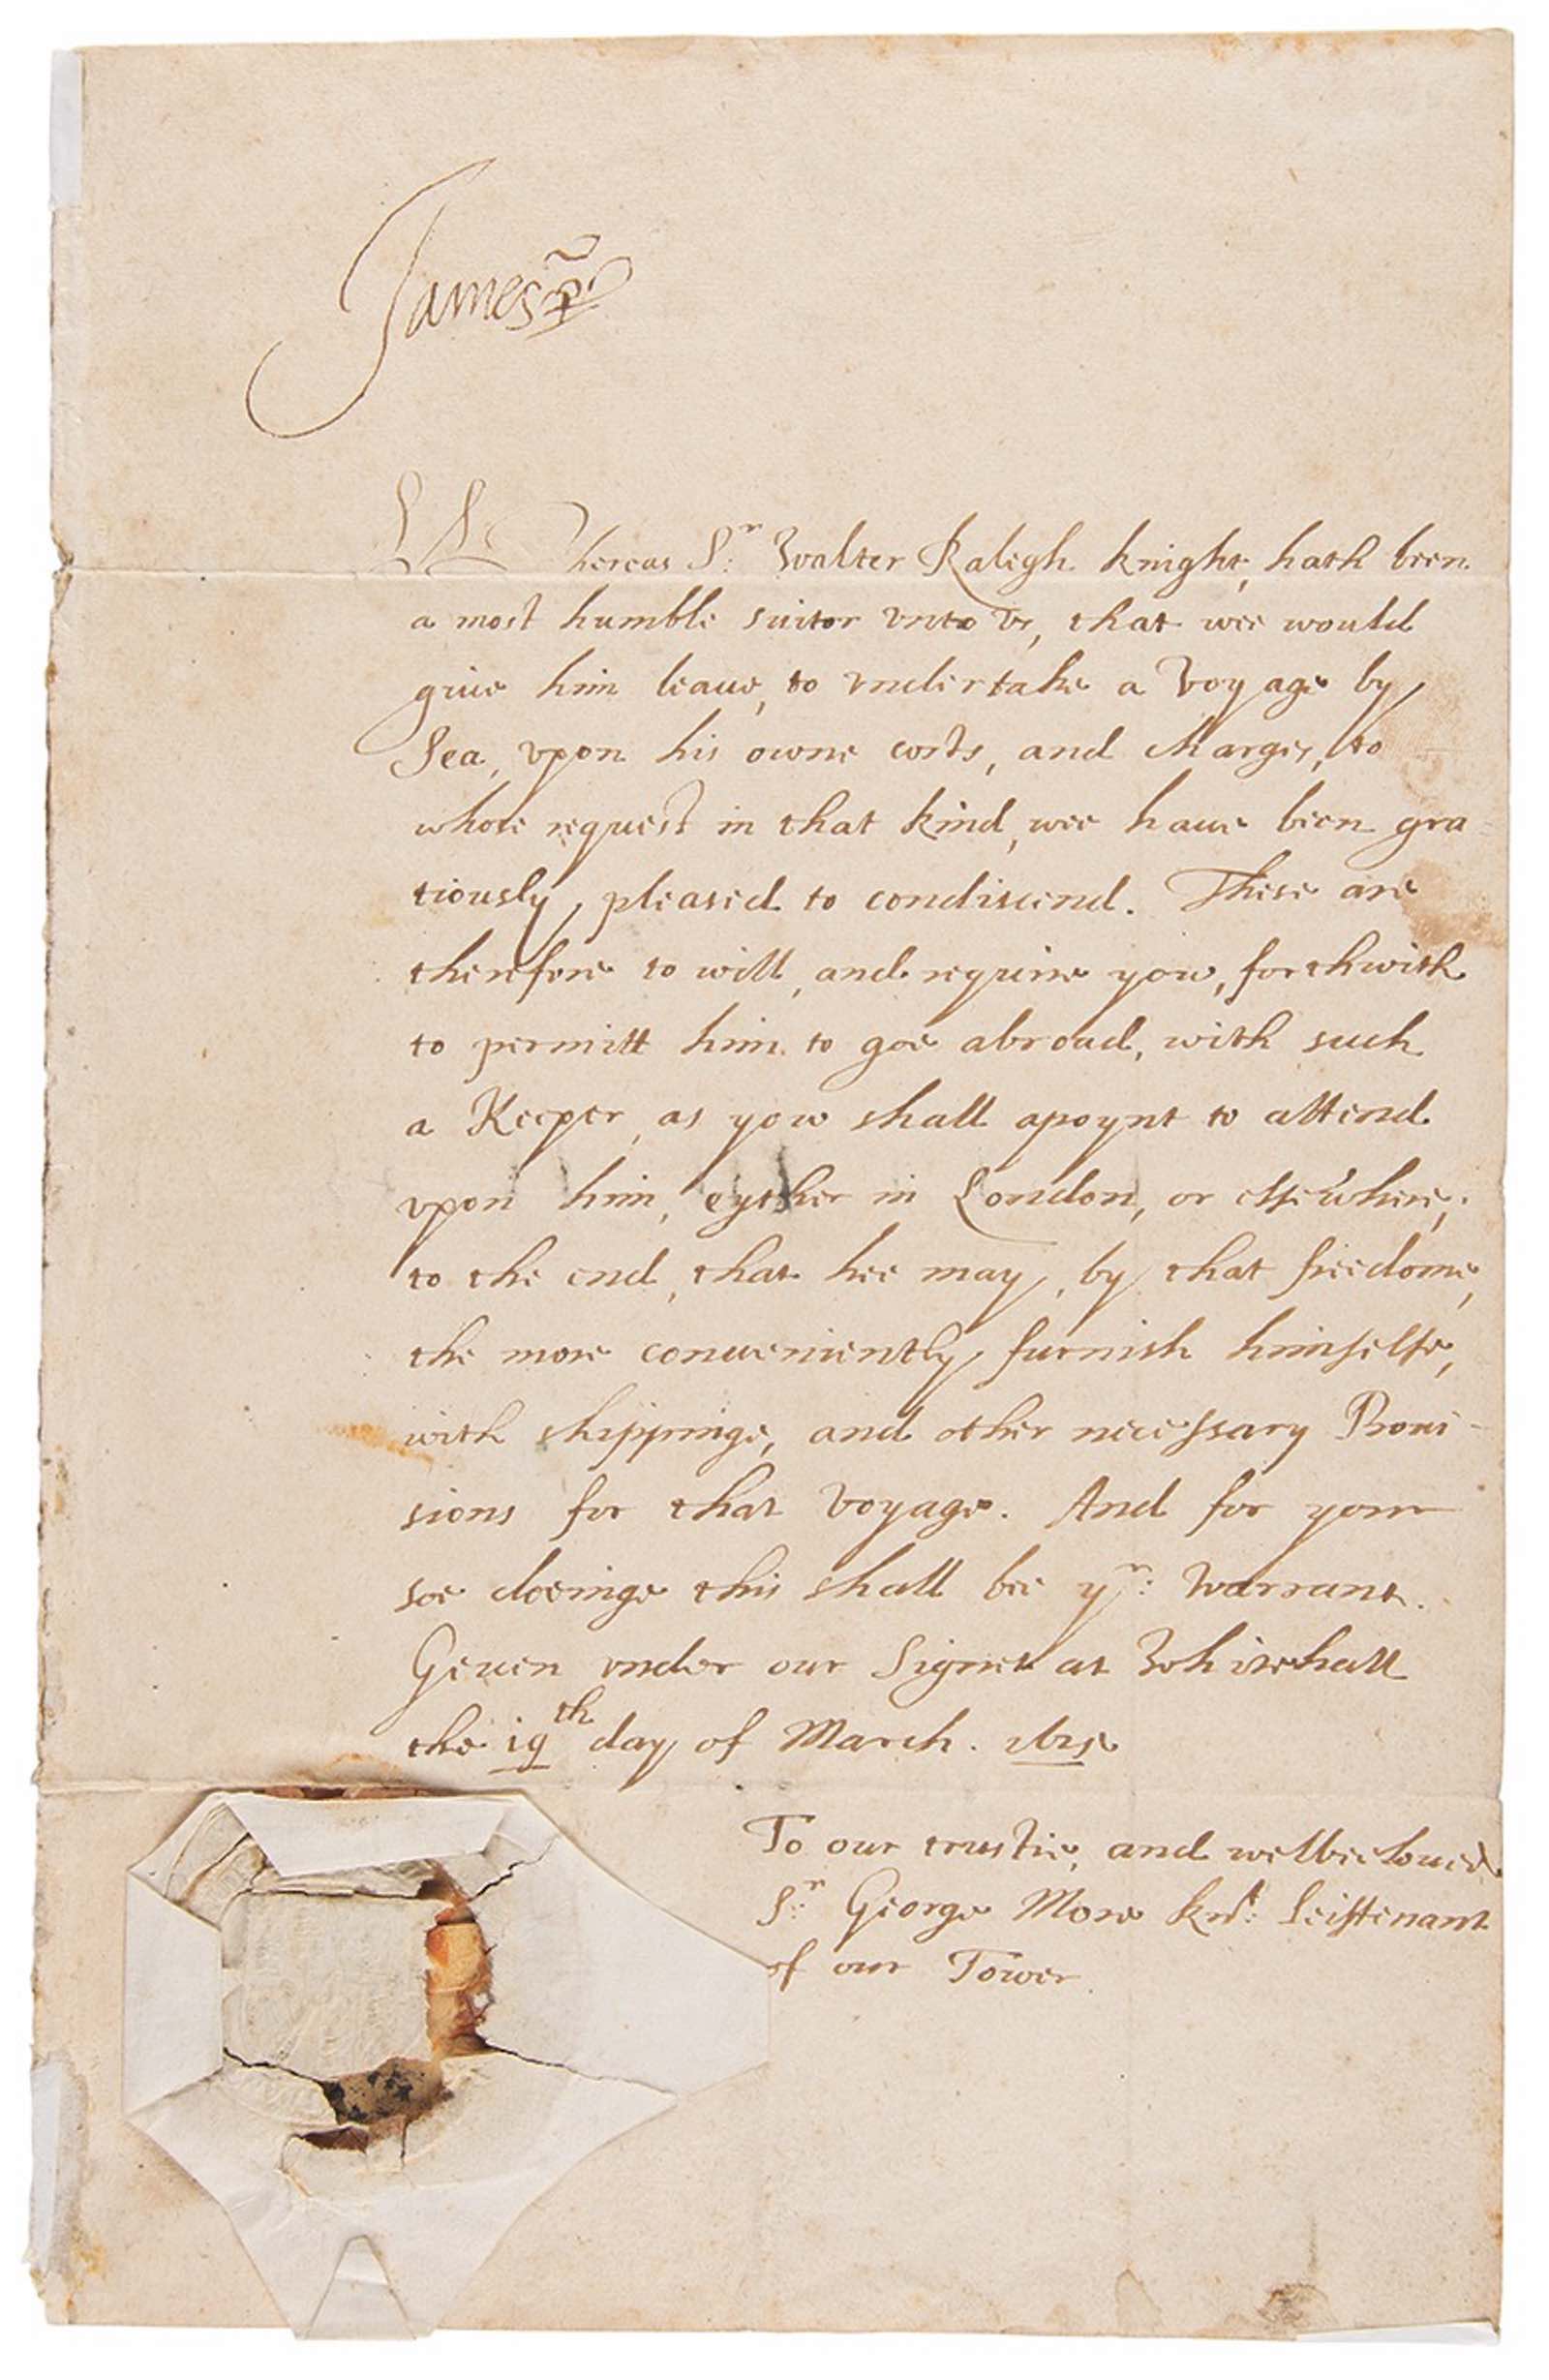 James R
Whereas Sr: Walter Ralegh knight, hath been
a most humble suitor vnto vs, that wee would
giue him leaue, to vndertake a Voyage by
Sea, vpon his owne costs, and charges, to
whose request in that kind, wee haue been gra=
tiously pleased to condiscend. These are
therefore to will, and require yow, forthwith
to permitt him to goe abroad, with such
a Keeper, as yow shall apoynt to attend
vpon him, eyther in London, or elsewhere,
to the end, that hee may, by that freedome,
the more conueniently furnish himselfe,
with shippinge, and other necessary Proui-
sions for that Voyage. And for your
soe doeinge this shall bee yr: Warrant.
Geuen vnder our Signet at Whitehall
the 19th day of March. 1615
To our trustie, and welbeeloued
Sr: George More knt: Leiftenant
of our Tower.